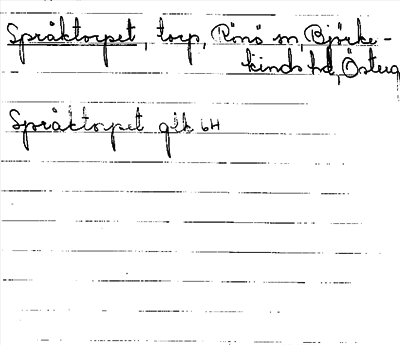 Språktorpet, torp, Rönö sn, Björke-
kinds hd, Österg
Språktorpet gek 6H